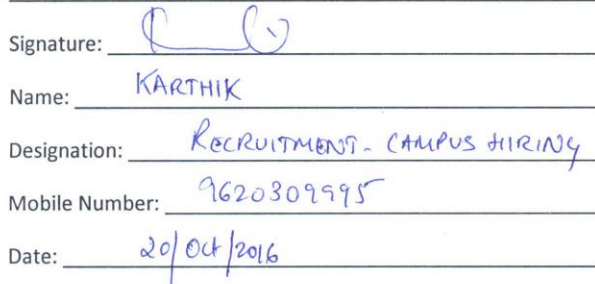 Signature:
Name: KARTHIK
Designation: RECRUITMENT - CAMPUS HIRING
Mobile Number: 9620309995
Date: 20/Oct/2016